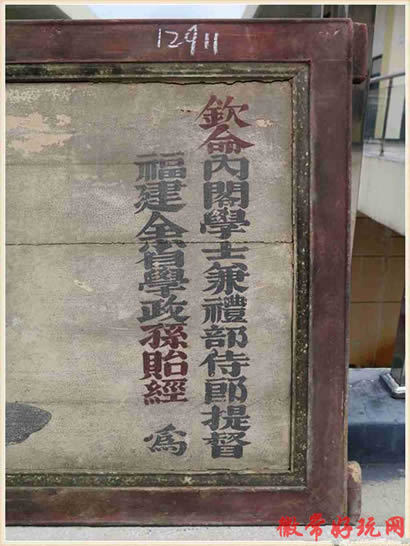 12911
欽命內閣學士兼禮部侍郎提督
福建全省學政孫貽經 為
徽常好玩网